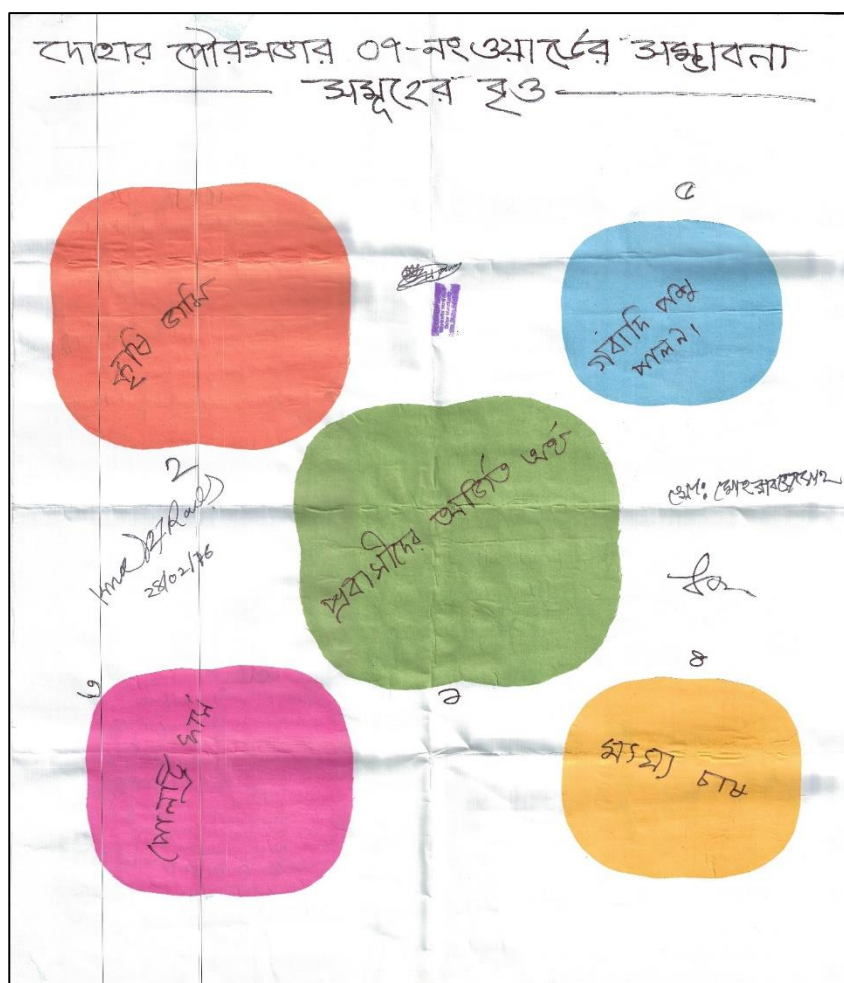 দোহার পৌরসভার ০৭-নংওয়ার্ডের সম্ভাবনা
সমূহের বৃত্ত
৫
কৃষি জমি
গবাদি পশু
পালন।
২
প্রবাসীদের অর্জিত অর্থ
২৪/০২/১৬
৩
১
৪
পোলট্রি ফার্ম
মৎস্য চাষ